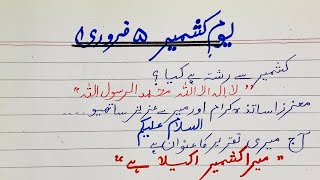 یومِ کشمیر ۵ فروری
کشمیر سے رشتہ ہے کیا؟
"لا الہ الا اللہ محمد الرسول اللہ"
معزز اساتذہ کرام اور میرے عزیز ساتھیو.....
السلام علیکم
آج میری تقریر کا عنوان ہے
"میرا کشمیر اکیلا ہے"